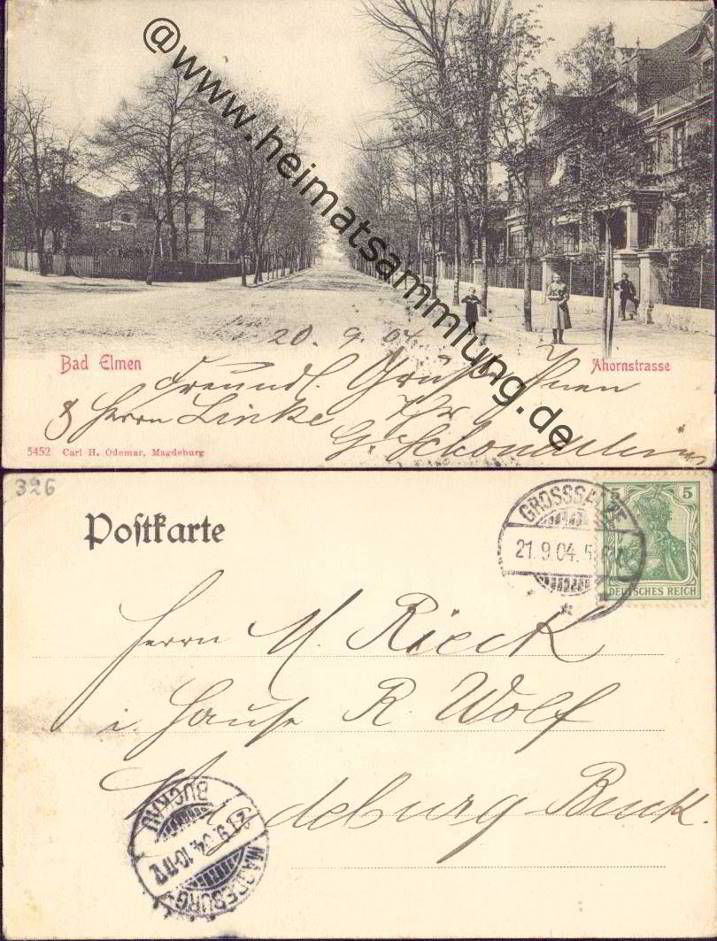 @www.heimatsammlung.de
20. 9. 04
Bad Elmen
Ahornstrasse
Freundl. Gruß Ihnen
& Herrn Linke Ihr
G.
5452 Carl H. Odemar, Magdeburg
326
Postkarte
GROSSSALZE
21.9.04. 5
5 5
DEUTSCHES REICH
Herrn M. Rieck
i. Hause R. Wolf
Magdeburg-Buck.
MAGDEBURG
BUCKAU
21.9.04. 10-11